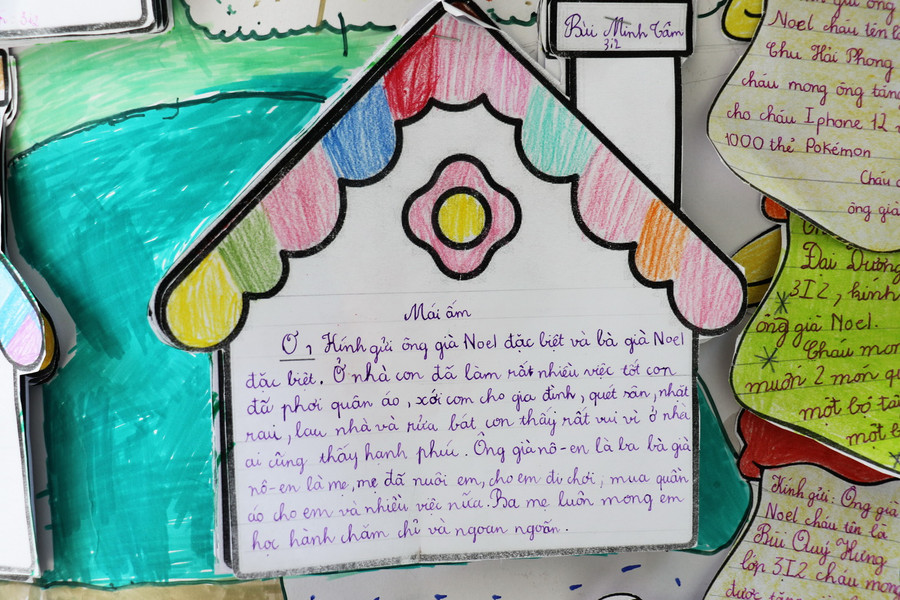 Bùi Minh Tâm
3I2
Mái ấm
Ơ, Kính gửi ông già Noel đặc biệt và bà già Noel
đặc biệt. Ở nhà con đã làm rất nhiều việc tốt con
đã phơi quần áo, xới cơm cho gia đình, quét sân, nhặt
rau, lau nhà và rửa bát con thấy rất vui vì ở nhà
ai cũng thấy hạnh phúc. Ông già nô-en là ba bà già
nô-en là mẹ, mẹ đã nuôi em, cho em đi chơi, mua quần
áo cho em và nhiều việc nữa. Ba mẹ luôn mong em
học hành chăm chỉ và ngoan ngoãn.
gửi ông
Noel cháu tên là
Chu Hải Phong
cháu mong ông tặng
cho cháu Iphone 12
1000 thẻ Pokémon
Cháu
ông già
Đại Dương
3I2, kính
ông già Noel.
Cháu mon
muốn 2 món qu
một bộ
một b
Kính gửi: Ông già
Noel cháu tên là
Bùi Quý Hưng
lớp 3I2 cháu mong
được tặng